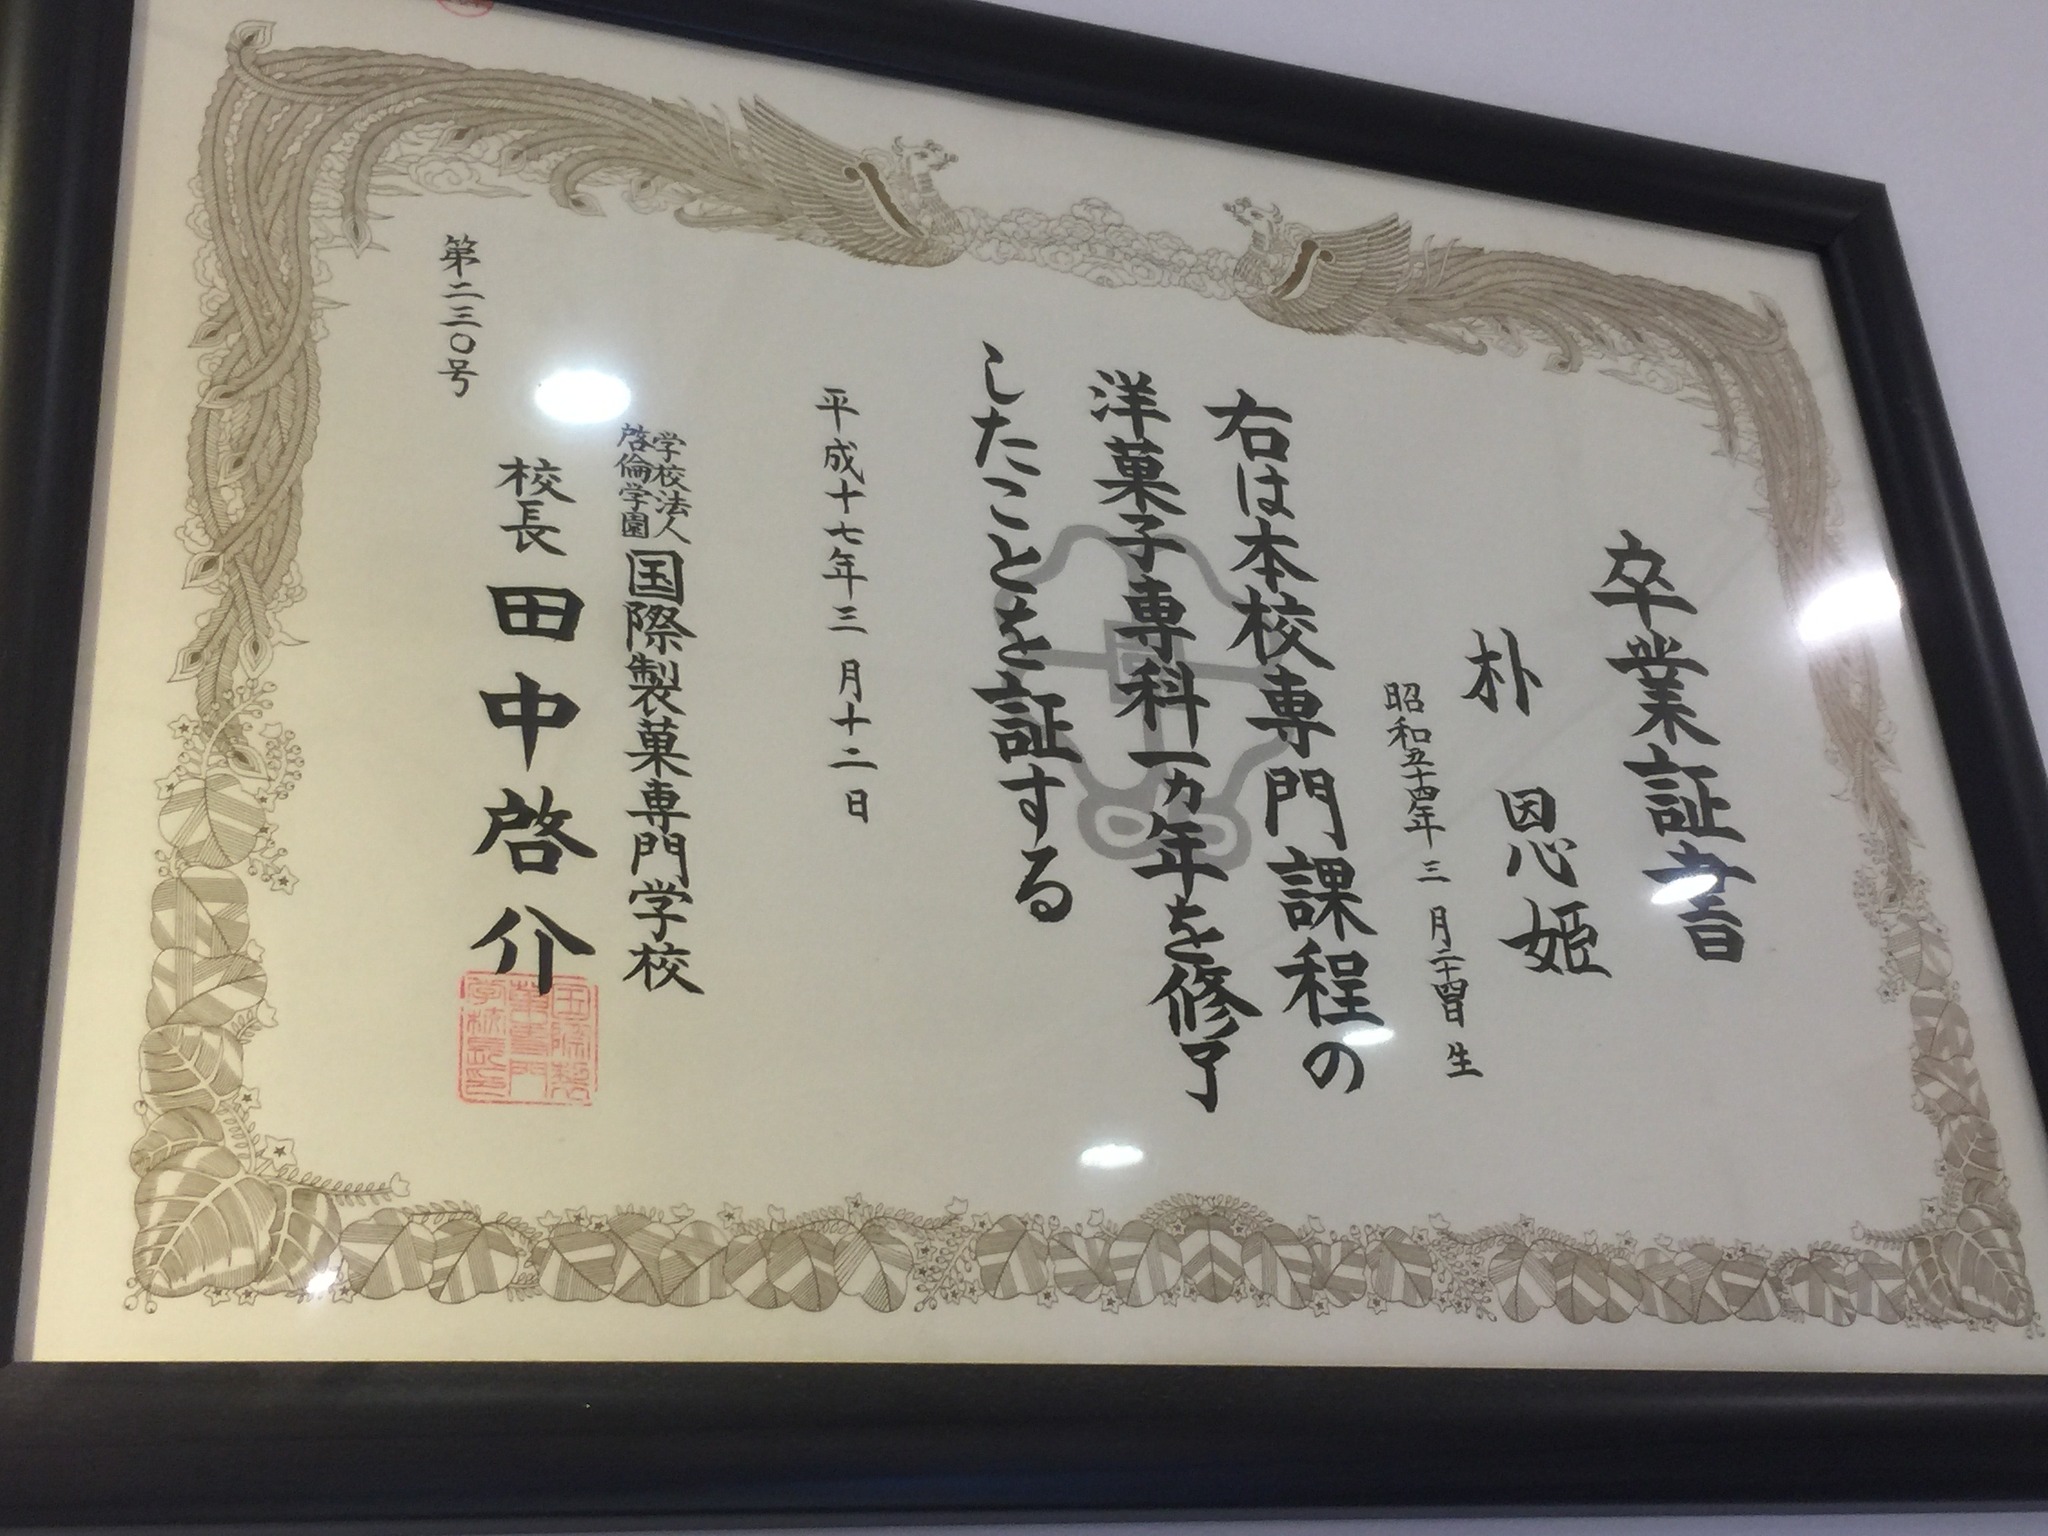 卒業証書
朴恩姫
昭和五十四年三月二十四日生
右は本校専門課程の
洋菓子専科一ヵ年を修了
したことを証する
平成十七年三月十二日
学校法人
啓倫学園
国際製菓専門学校
校長 田中啓介
国際製
菓専門
学校長印
第二三〇号